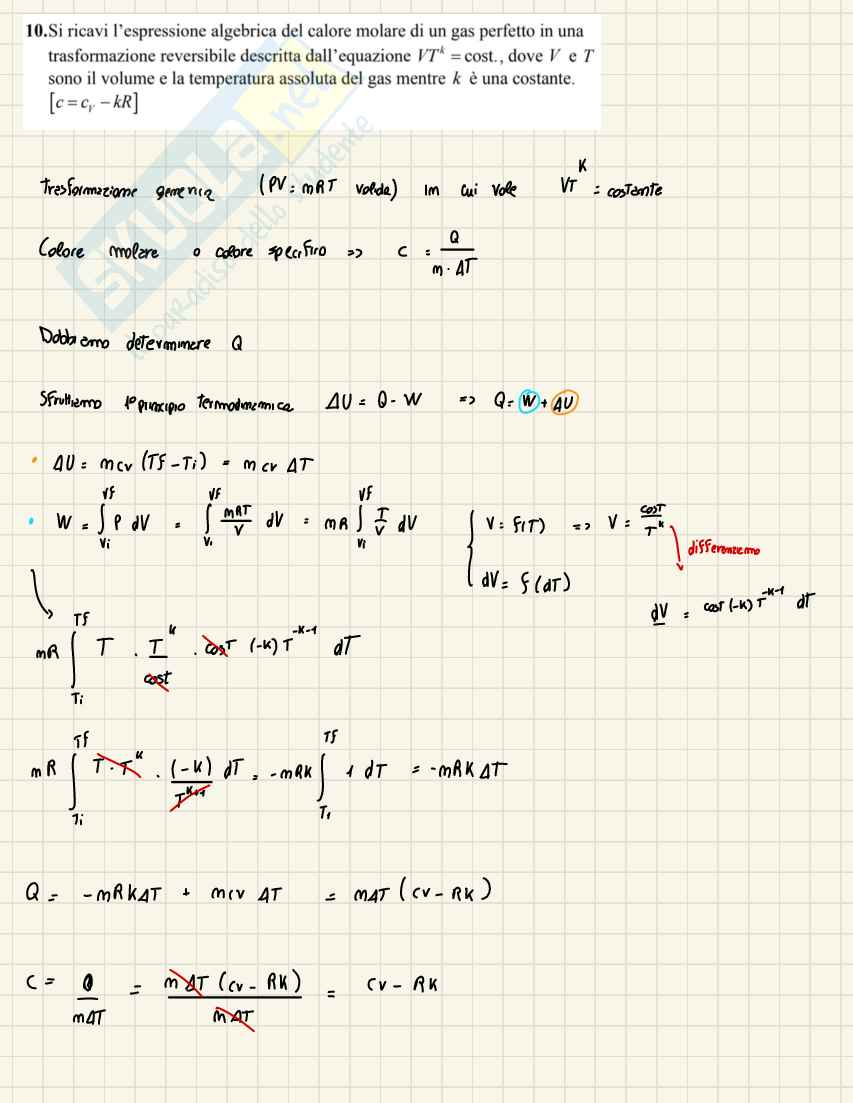 10.Si ricavi l'espressione algebrica del calore molare di un gas perfetto in una
trasformazione reversibile descritta dall'equazione VT^k = cost., dove V e T
sono il volume e la temperatura assoluta del gas mentre k è una costante.
[c = c_V − kR]
SKUOLA.net
il paradiso dello studente
Trasformazione generica (PV = mRT valida) in cui vale VT^K = costante
Calore molare o calore specifico => c = Q / m · ΔT
Dobbiamo determinare Q
Sfruttiamo 1° principio termodinamica ΔU = Q - W => Q = W + ΔU
• ΔU = mcv (Tf - Ti) = mcv ΔT
• W = ∫_Vi^Vf P dV = ∫_Vi^Vf mRT/V dV = mR ∫_Vi^Vf T/V dV { V = f(T) => V = cost/T^k
differenziamo
dV = f(dT)
dV = cost (-k) T^-k-1 dT
mR ∫_Ti^Tf T · T^k/cost · cost (-k) T^-k-1 dT
mR ∫_Ti^Tf T · T^k · (-k)/T^k+1 dT = -mRk ∫_Ti^Tf 1 dT = -mRk ΔT
Q = -mRkΔT + mcv ΔT = mΔT (cv - RK)
C = Q/mΔT = mΔT (cv - RK)/mΔT = cv - RK